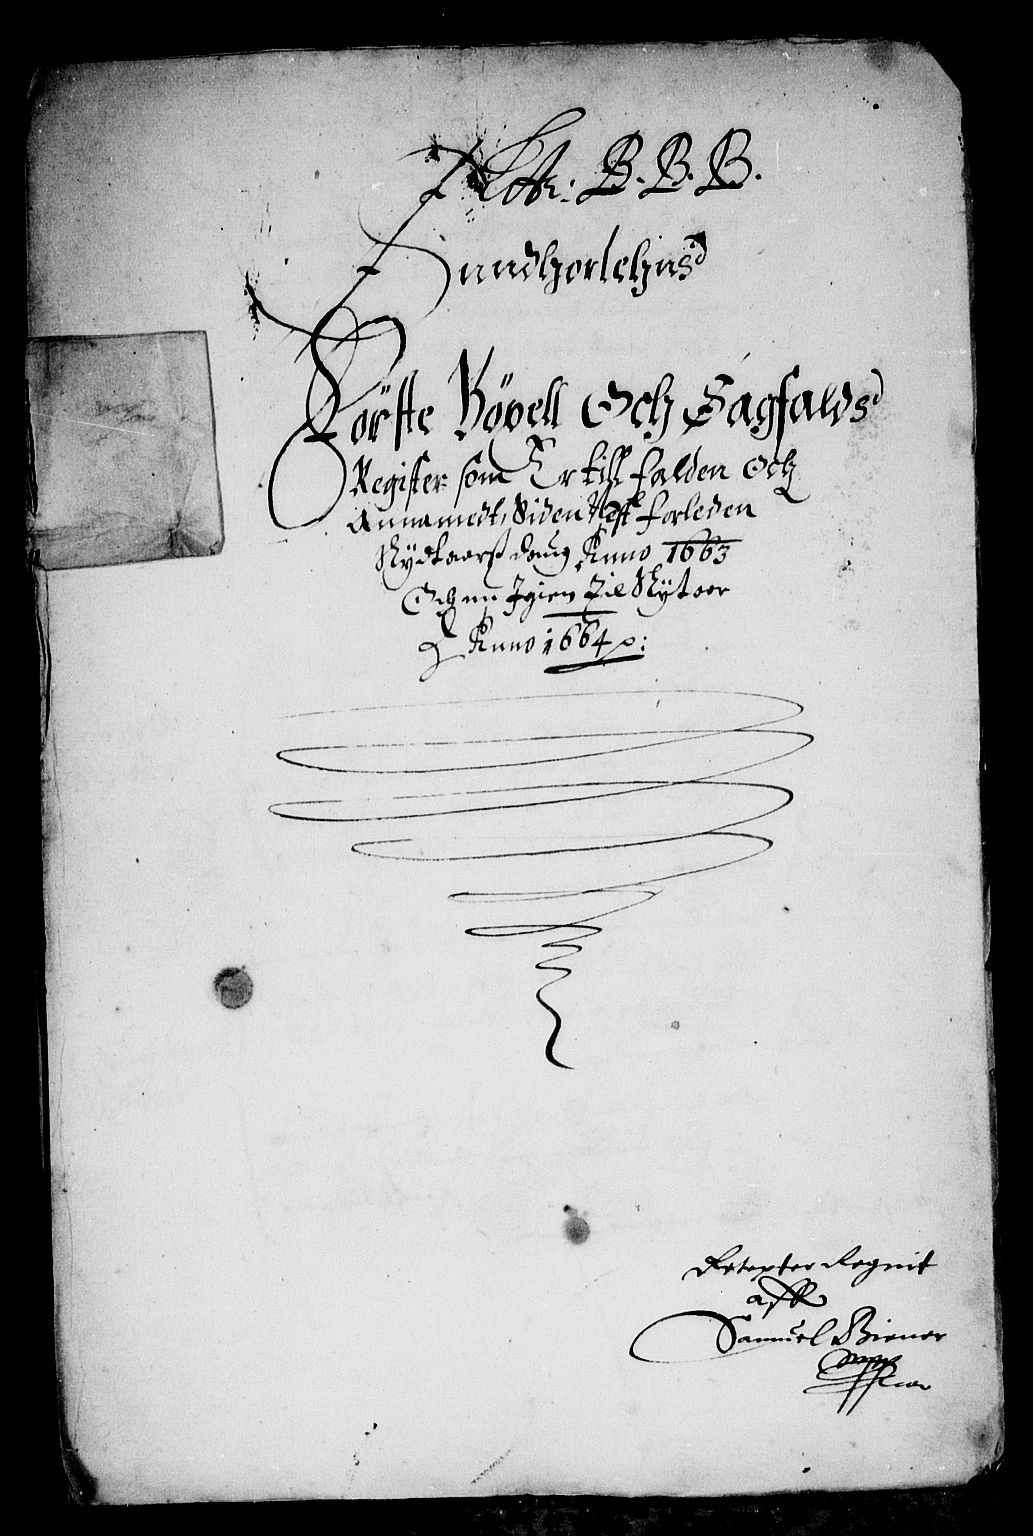 Litr: B. B. B.
Sundhorlehns
Förste Böxell Och Sagfalds
Register som Er till falden Och
Annamedt, Siden Nest forleden
Nydtaarß daug Anno 1663
Och nu Igien Til Nytaar
Anno 1664 p:
Regnit
aff
Samuel Biener